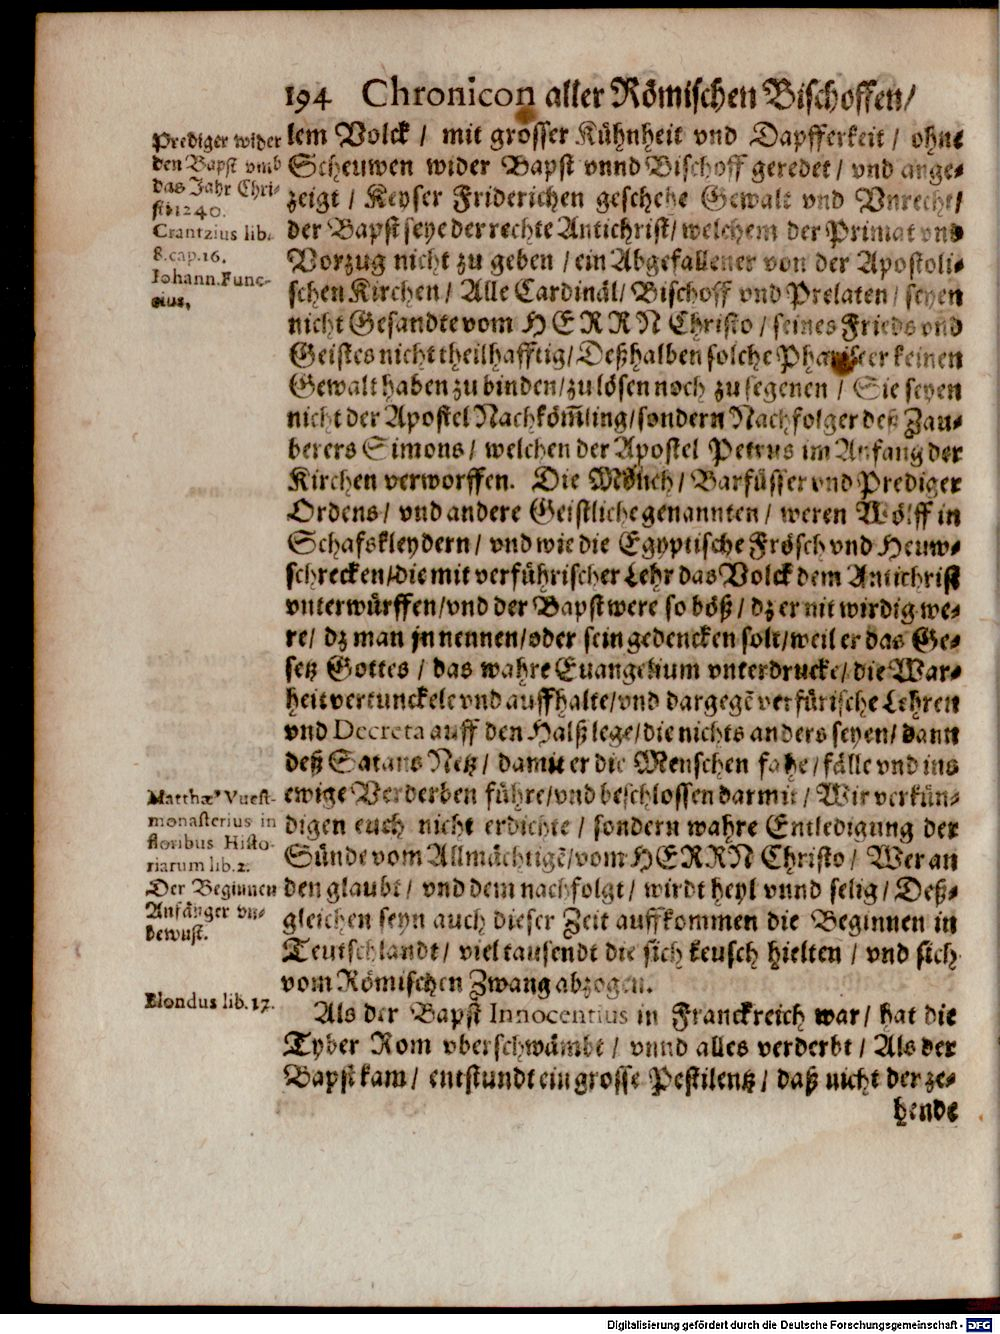 194 Chronicon aller Römischen Bischoffen/
Prediger wider
den Bapst vmb
das Jahr Chri-
sti 1240.
Crantzius lib.
8. cap. 16.
Iohann. Func-
cius,
lem Volck / mit grosser Kühnheit vnd Dapfferkeit / ohne
Scheuwen wider Bapst vnnd Bischoff geredet / vnd ange-
zeigt / Keyser Friderichen geschehe Gewalt vnd Vnrecht/
der Bapst seye der rechte Antichrist / welchem der Primat vnd
Vorzug nicht zu geben / ein Abgefallener von der Apostoli-
schen Kirchen / Alle Cardinäl / Bischoff vnd Prelaten / seyen
nicht Gesandte vom HERRN Christo / seines Frieds vnd
Geistes nicht theilhafftig / Deßhalben solche Phariseer keinen
Gewalt haben zu binden / zu lösen noch zu segenen / Sie seyen
nicht der Apostel Nachköm̃ling / sondern Nachfolger deß Zau-
berers Simons / welchen der Apostel Petrus im Anfang der
Kirchen verworffen. Die Mönch / Barfüsser vnd Prediger
Ordens / vnd andere Geistliche genannten / weren Wölff in
Schafskleydern / vnd wie die Egyptische Frösch vnd Heuw-
schrecken / die mit verführischer Lehr das Volck dem Antichrist
vnterwürffen / vnd der Bapst were so böß / dz er nit wirdig we-
re / dz man jn nennen / oder sein gedencken solt / weil er das Ge-
setz Gottes / das wahre Euangelium vnterdrucke / die War-
heit vertunckele vnd auffhalte / vnd dargegẽ verfürische Lehren
vnd Decreta auff den Halß lege / die nichts anders seyen / dann
deß Satans Netz / damit er die Menschen fahe / fälle vnd ins
Matthæ⁹ Vuest-
monasterius in
floribus Histo-
riarum lib. 2.
Der Beginnen
Anfänger vn-
bewust.
ewige Verderben führe / vnd beschlossen darmit / Wir verkün-
digen euch nicht erdichte / sondern wahre Entledigung der
Sünde vom Allmächtigẽ / vom HERRN Christo / Wer an
den glaubt / vnd dem nachfolgt / wirdt heyl vnnd selig / Deß-
gleichen seyn auch dieser Zeit auffkommen die Beginnen in
Teutschlandt / viel tausendt die sich keusch hielten / vnd sich
vom Römischen Zwang abzogen.
Blondus lib. 17.
Als der Bapst Innocentius in Franckreich war / hat die
Tyber Rom vberschwämbt / vnnd alles verderbt / Als der
Bapst kam / entstundt ein grosse Pestilentz / daß nicht der ze-
hende
Digitalisierung gefördert durch die Deutsche Forschungsgemeinschaft - DFG